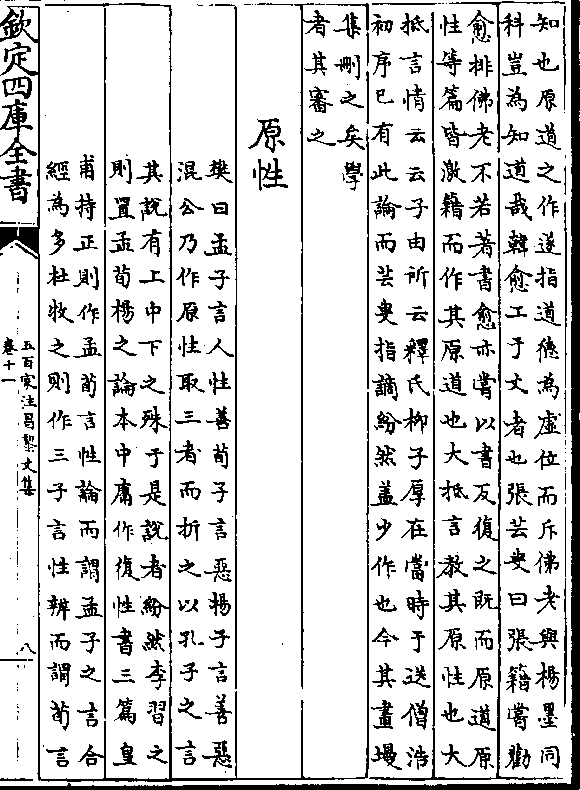 知也原道之作遂指道德為虛位而斥佛老與楊墨同
科豈為知道哉韓愈工于文者也張芸叟曰張籍嘗勸
愈排佛老不若著書愈亦嘗以書反復之既而原道原
性等篇皆激籍而作其原道也大抵言教其原性也大
抵言情云云子由所云釋氏柳子厚在當時于送僧浩
初序已有此論而芸叟指謫紛然蓋少作也今其畫墁
集刪之矣學
者其審之
原性
樊曰孟子言人性善荀子言惡楊子言善惡
混公乃作原性取三者而折之以孔子之言
其說有上中下之殊于是說者紛然李習之
則置孟荀楊之論本中庸作復性書三篇皇
甫持正則作孟荀言性論而謂孟子之言合
經為多杜牧之則作三子言性辨而謂荀言
欽定四庫全書
五百家注昌黎文集
卷十一
八